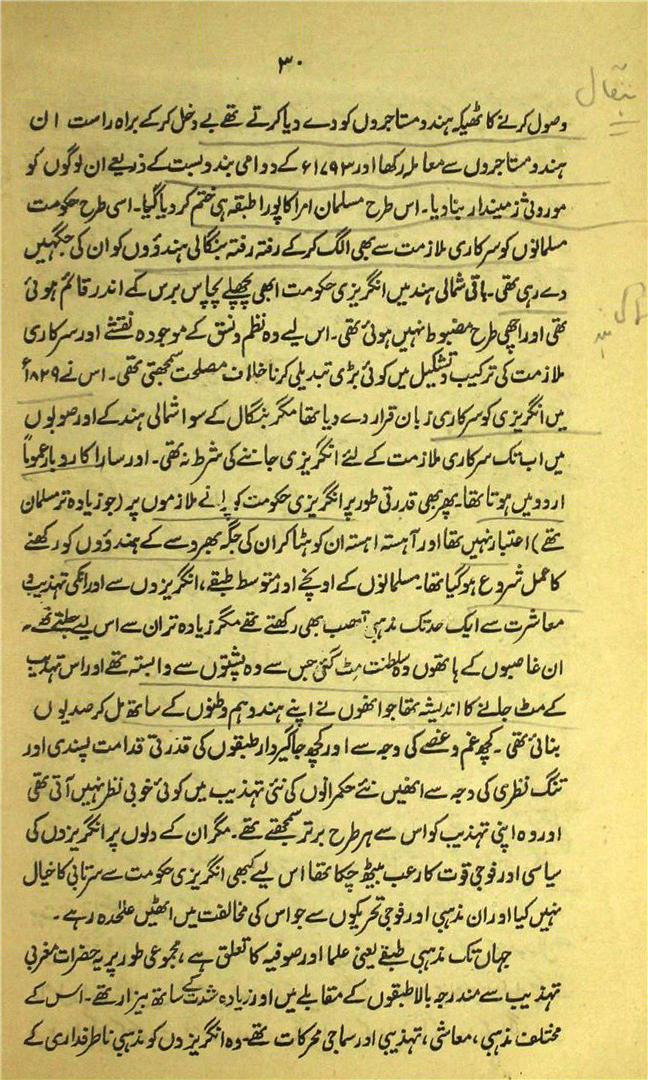 ۳۰
وصول کرنے کا ٹھیکہ ہندو مستاجروں کو دے دیا کرتے تھے بے دخل کر کے براہ راست ان
ہندو مستاجروں سے معاملہ رکھا اور ۱۷۹۳ء کے دوامی بندوبست کے ذریعے ان لوگوں کو
موروثی زمیندار بنا دیا۔ اس طرح مسلمان امرا کا پورا طبقہ ہی ختم کر دیا گیا۔ اسی طرح حکومت
مسلمانوں کو سرکاری ملازمت سے بھی الگ کر کے رفتہ رفتہ بنگالی ہندوؤں کو ان کی جگہیں
دے رہی تھی۔ باقی شمالی ہند میں انگریزی حکومت ابھی پچھلے پچاس برس کے اندر قائم ہوئی
تھی اور اچھی طرح مضبوط نہیں ہوئی تھی۔ اس لیے وہ نظم و نسق کے موجودہ نقشے اور سرکاری
ملازمت کی ترکیب و تشکیل میں کوئی بڑی تبدیلی کرنا خلاف مصلحت سمجھتی تھی۔ اس نے ۱۸۲۹ء
میں انگریزی کو سرکاری زبان قرار دے دیا تھا مگر بنگال کے سوا شمالی ہند کے اور صوبوں
میں اب تک سرکاری ملازمت کے لئے انگریزی جاننے کی شرط نہ تھی۔ اور سارا کاروبار عموماً
اردو میں ہوتا تھا۔ پھر بھی قدرتی طور پر انگریزی حکومت کو پرانے ملازموں پر (جو زیادہ تر مسلمان
تھے) اعتبار نہیں تھا اور آہستہ آہستہ ان کو ہٹا کر ان کی جگہ بھروسے کے ہندوؤں کو رکھنے
کا عمل شروع ہو گیا تھا۔ مسلمانوں کے اونچے اور متوسط طبقے، انگریزوں سے اور انکی تہذیب و
معاشرت سے ایک حد تک مذہبی تعصب بھی رکھتے تھے مگر زیادہ تر ان سے اس لیے جلتے تھے۔
ان غاصبوں کے ہاتھوں وہ سلطنت مٹ گئی جس سے وہ پشتوں سے وابستہ تھے اور اس تہذیب
کے مٹ جانے کا اندیشہ تھا جو انھوں نے اپنے ہندو ہم وطنوں کے ساتھ مل کر صدیوں
بنائی تھی۔ کچھ غم و غصے کی وجہ سے اور کچھ جاگیردار طبقوں کی قدرتی قدامت پسندی اور
تنگ نظری کی وجہ سے انھیں نئے حکمرانوں کی نئی تہذیب میں کوئی خوبی نظر نہیں آتی تھی
اور وہ اپنی تہذیب کو اس سے ہر طرح برتر سمجھتے تھے۔ مگر ان کے دلوں پر انگریزوں کی
سیاسی اور فوجی قوت کا رعب بیٹھ چکا تھا اس لیے کبھی انگریزی حکومت سے سرتابی کا خیال
نہیں کیا اور ان مذہبی اور فوجی تحریکوں سے جو اس کی مخالفت میں اٹھیں علٰحدہ رہے۔
جہاں تک مذہبی طبقے یعنی علما اور صوفیہ کا تعلق ہے، مجموعی طور پر یہ حضرات مغربی
تہذیب سے مندرجہ بالا طبقوں کے مقابلے میں اور زیادہ شدت کے ساتھ بیزار تھے۔ اس کے
مختلف مذہبی، معاشی، تہذیبی اور سماجی محرکات تھے۔ وہ انگریزوں کو مذہبی ناطرفداری کے